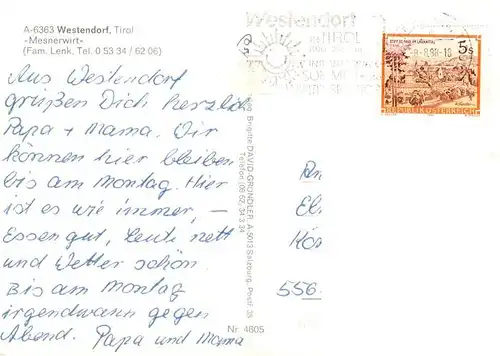 A-6363 Westendorf, Tirol
-Mesnerwirt-
(Fam. Lenk, Tel. 0 53 34 / 62 06)
Aus Westendorf
grüßen Dich herzlich
Papa + Mama. Wir
können hier bleiben
bis am Montag. Hier
ist es wie immer, –
Essen gut, Leute nett
und Wetter schön.
Bis am Montag
irgendwann gegen
Abend. Papa und Mama
Brigitte DAVID-GRÜNDLER, A-5013 Salzburg, Postf. 26
Telefon (06 62) 34 3 34
Nr. 4805
Westendorf
in TIROL
-8.-8.88-10
5s
REPUBLIK ÖSTERREICH
An
El
Kö
556